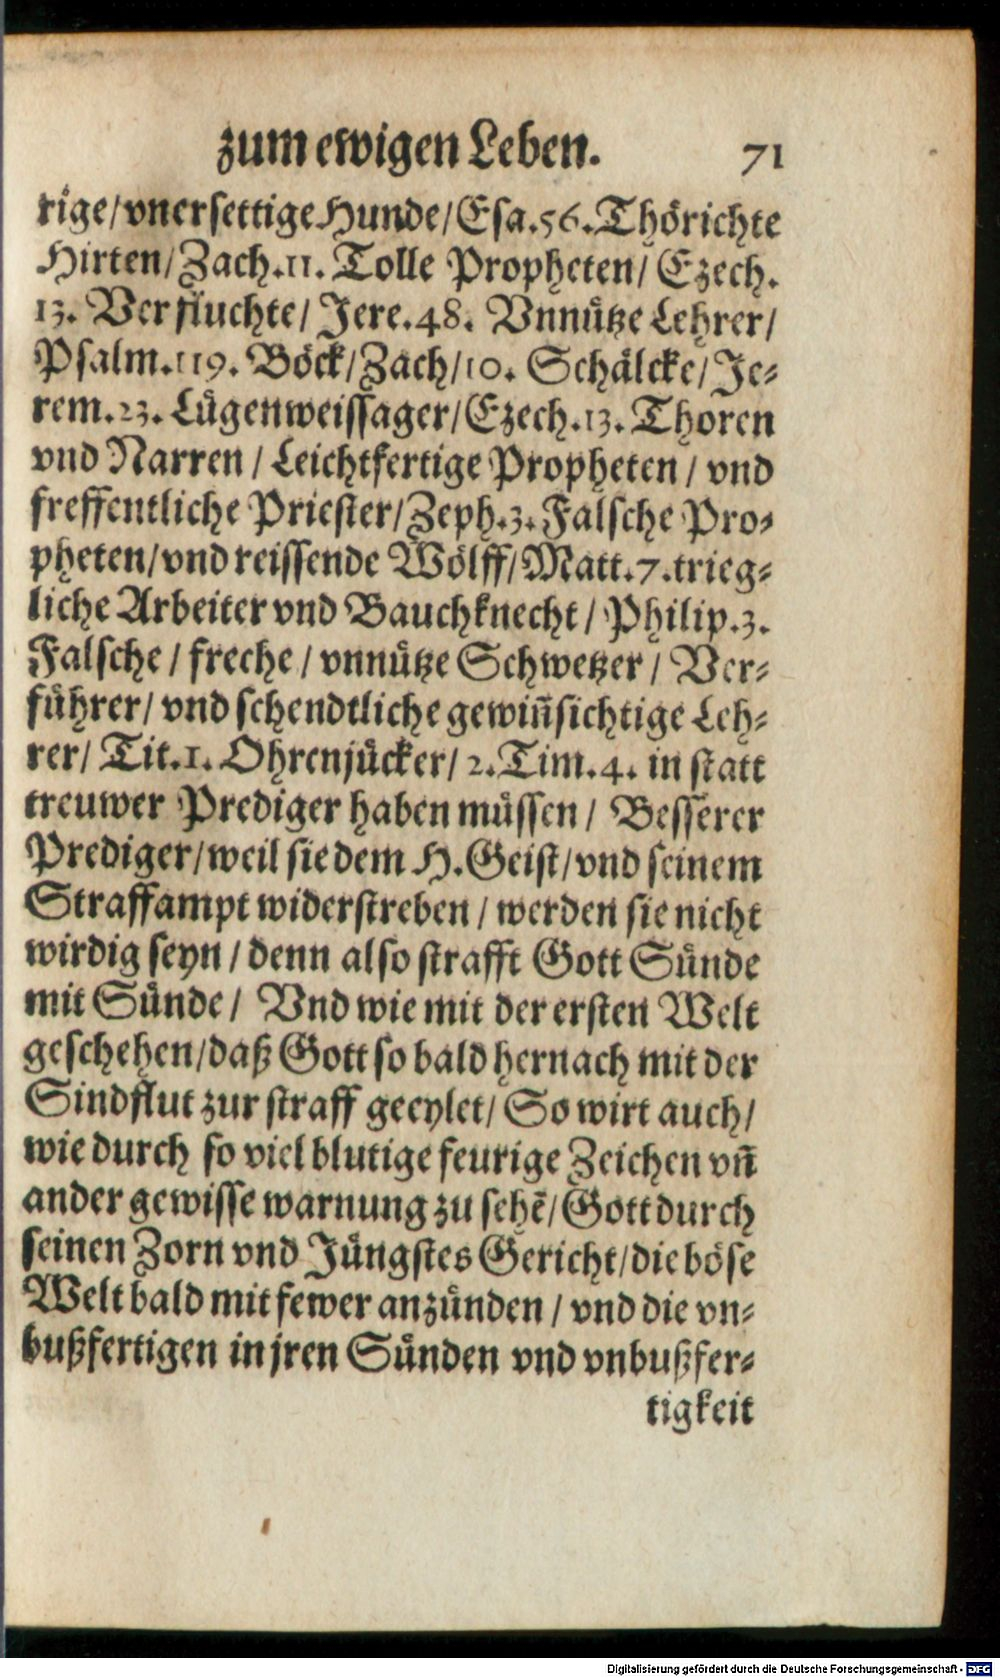 zum ewigen Leben. 71
rige/ vnersettige Hunde/ Esa. 56. Thörichte
Hirten/ Zach. 11. Tolle Propheten/ Ezech.
13. Verfluchte/ Jere. 48. Vnnütze Lehrer/
Psalm. 119. Böck/ Zach/ 10. Schälcke/ Je-
rem. 23. Lügenweissager/ Ezech. 13. Thoren
vnd Narren/ Leichtfertige Propheten/ vnd
freffentliche Priester/ Zeph. 3. Falsche Pro-
pheten/ vnd reissende Wölff/ Matt. 7. trieg-
liche Arbeiter vnd Bauchknecht/ Philip. 3.
Falsche/ freche/ vnnütze Schwetzer/ Ver-
führer/ vnd schendtliche gewiñsichtige Leh-
rer/ Tit. 1. Ohrenjücker/ 2. Tim. 4. in statt
treuwer Prediger haben müssen/ Besserer
Prediger/ weil sie dem H. Geist/ vnd seinem
Straffampt widerstreben/ werden sie nicht
wirdig seyn/ denn also strafft Gott Sünde
mit Sünde/ Vnd wie mit der ersten Welt
geschehen/ daß Gott so bald hernach mit der
Sindflut zur straff geeylet/ So wirt auch/
wie durch so viel blutige feurige Zeichen vñ
ander gewisse warnung zu sehẽ/ Gott durch
seinen Zorn vnd Jüngstes Gericht/ die böse
Welt bald mit fewer anzünden/ vnd die vn-
bußfertigen in jren Sünden vnd vnbußfer-
tigkeit
Digitalisierung gefördert durch die Deutsche Forschungsgemeinschaft - DFG